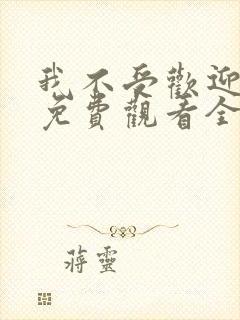 我不受歡迎
免費觀看全
蔣靈